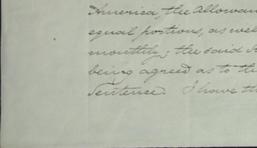 America, the Allowan
equal portions, as wel
monthly; the said A
being agreed as to th
Sentence. I have th